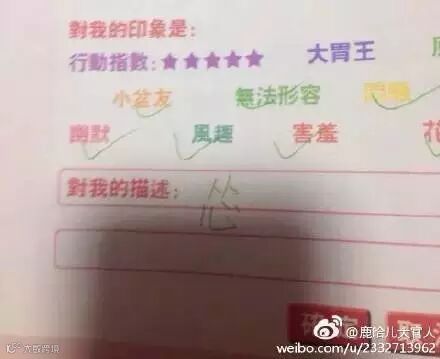 對我的印象是:
行動指數:★★★★★ 大胃王
小盆友 無法形容
幽默 風趣 害羞 花
對我的描述: 怂
@鹿哈儿大官人
weibo.com/u/2332713962
大数跨境